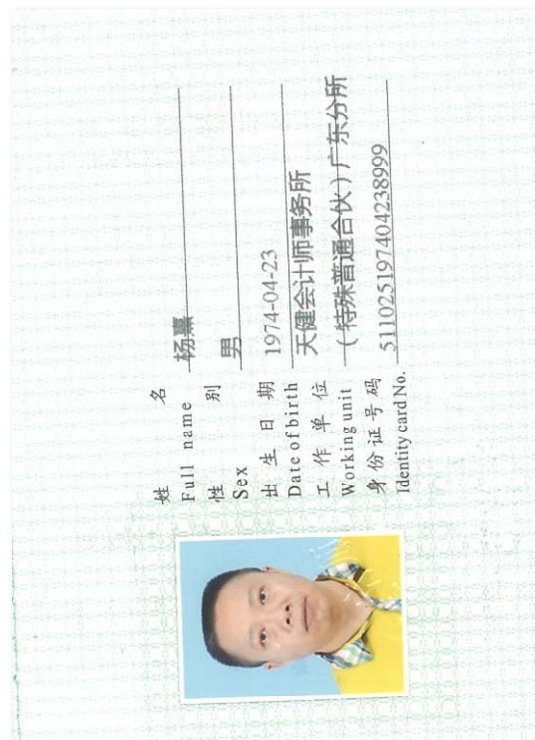 姓 名 杨熹
Full name
性 别 男
Sex
出 生 日 期 1974-04-23
Date of birth
工 作 单 位 天健会计师事务所
Working unit （特殊普通合伙）广东分所
身 份 证 号 码 511025197404238999
Identity card No.